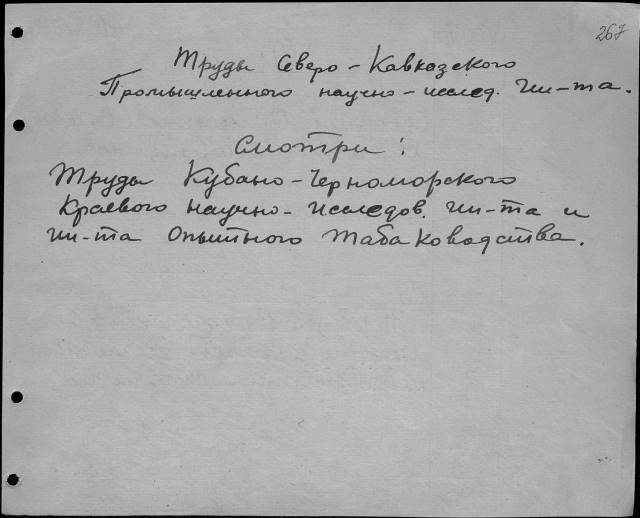 267
Труды Северо-Кавказского
Промышленного научно-исслед. Ин-та.
Смотри:
Труды Кубано-Черноморского
Краевого научно-исследов. Ин-та и
Ин-та Опытного Табаководства.